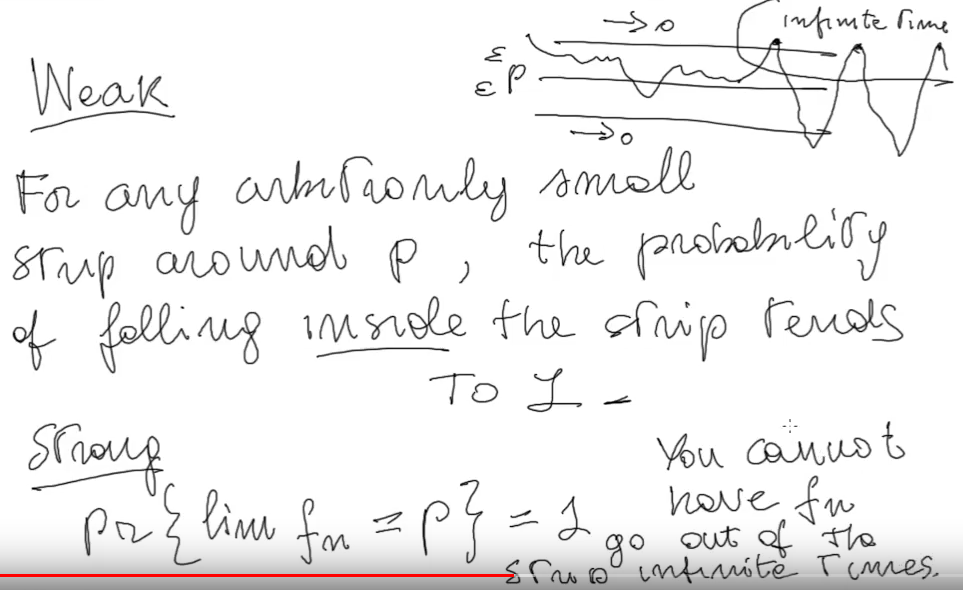 → 0
infinite Time
ε
ε P
→ 0
Weak
For any arbitrarily small
strip around p, the probability
of falling inside the strip tends
To 1
Strong
Pr{lim fn = p} = 1
You cannot
have fn
go out of the
strip infinite Times.